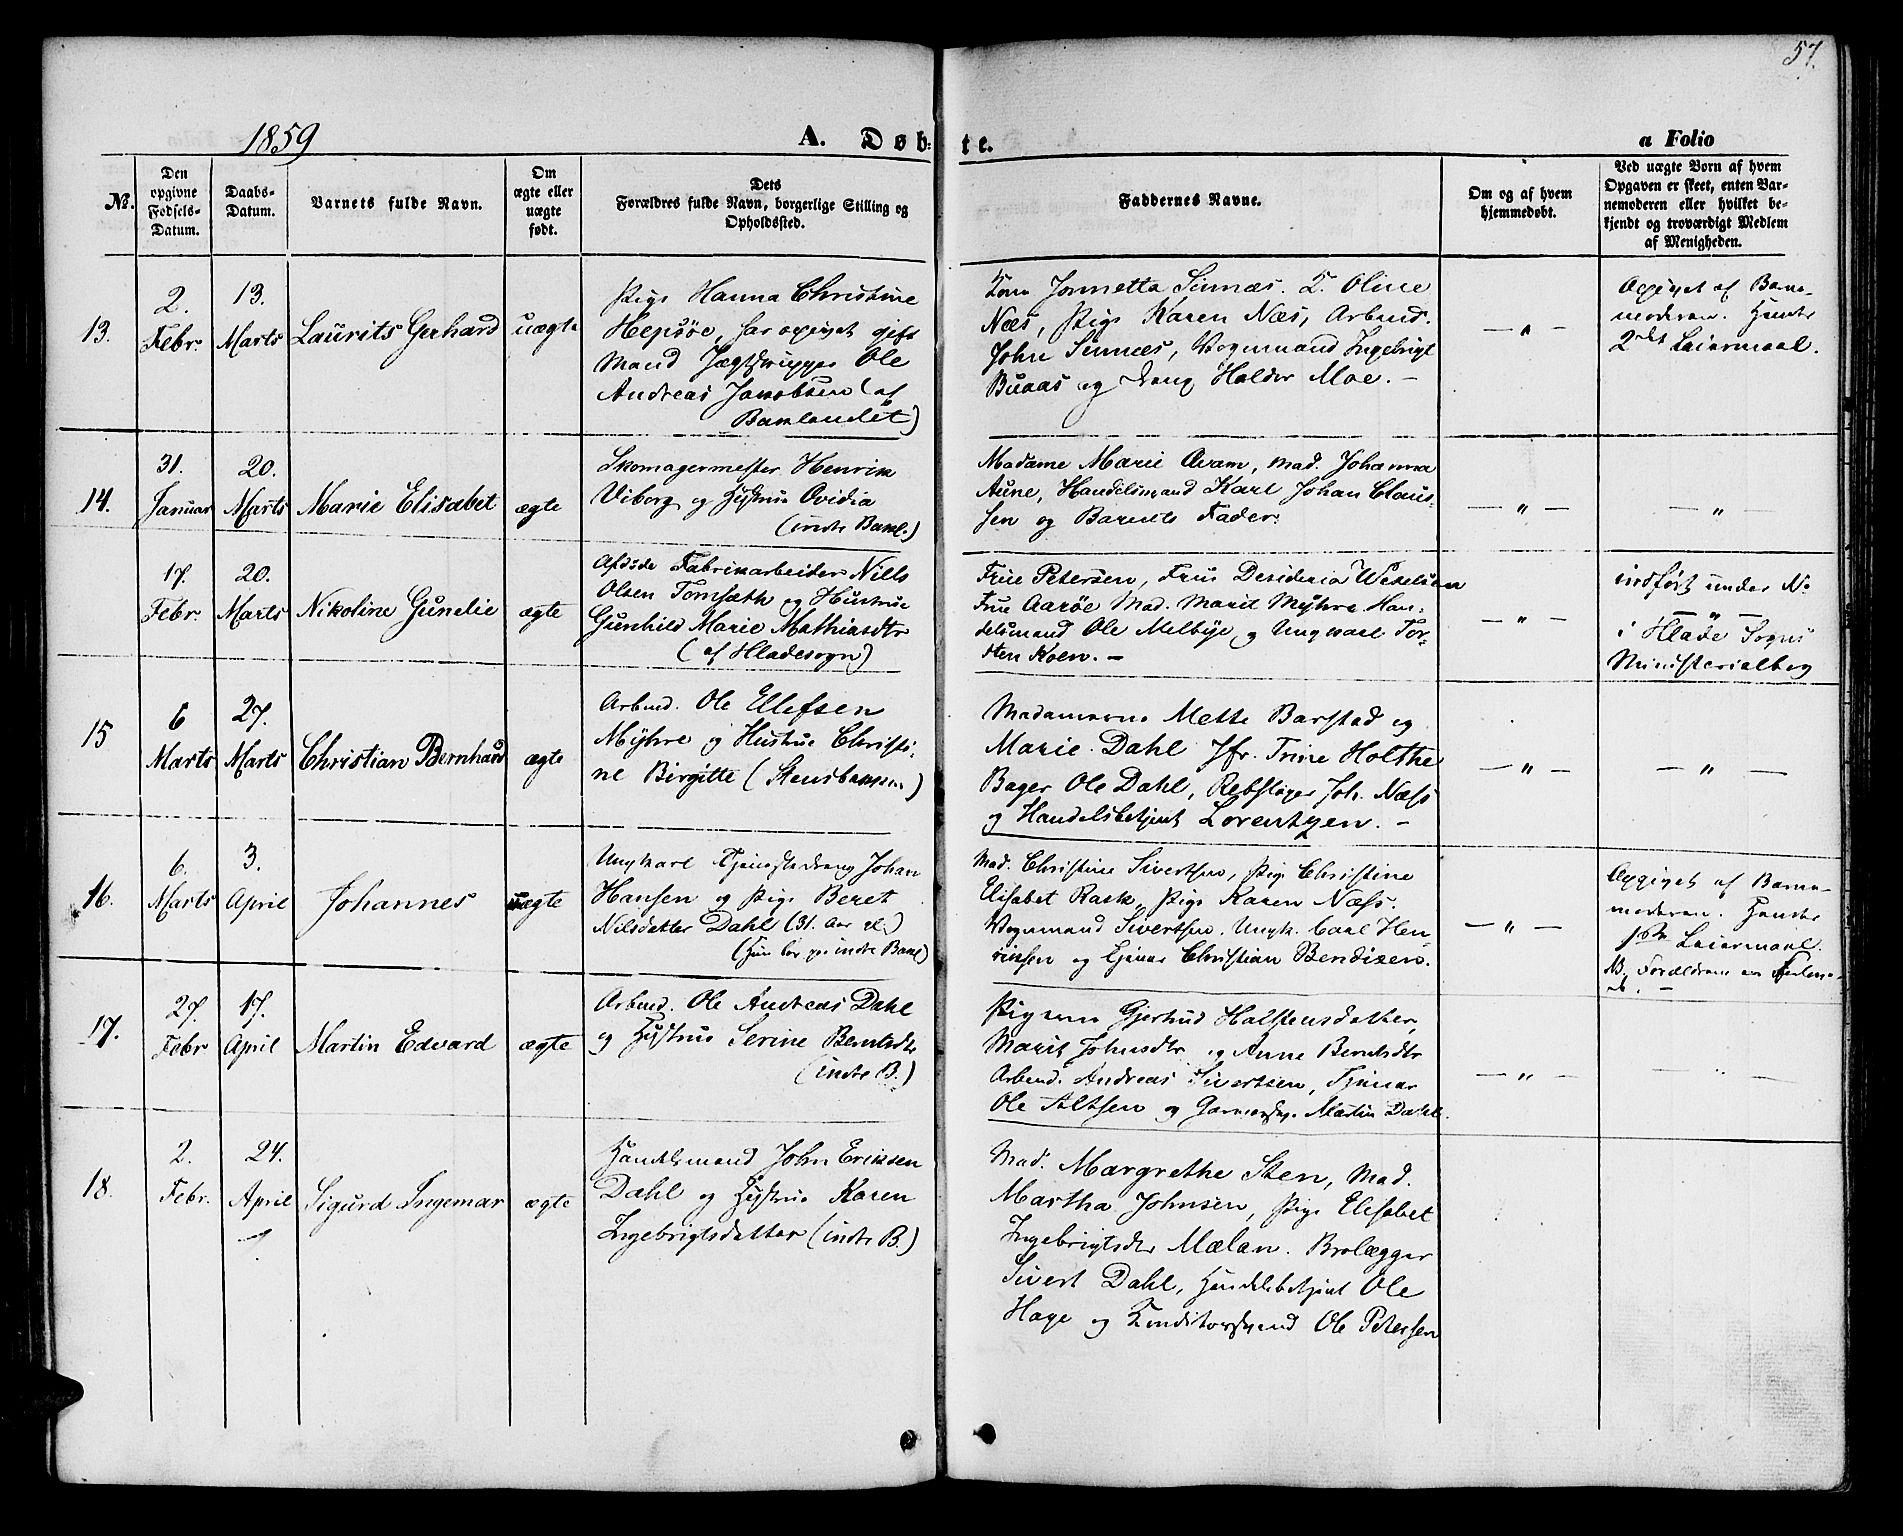 57.
1859
A. Døb-te.
a Folio
No.
Den opgivne Fødsels-Datum.
Daabs-Datum.
Barnets fulde Navn.
Om ægte eller uægte født.
Dets Forældres fulde Navn, borgerlige Stilling og Opholdssted.
Faddernes Navne.
Om og af hvem hjemmedøbt.
Ved uægte Børn af hvem Opgaven er skeet, enten Barnemoderen eller hvilket bekjendt og troværdigt Medlem af Menigheden.
13.
2. Febr.
13. Marts
Laurits Gerhard
uægte
Pige Hanna Christine
Hepsøe, har opgivet gift
Mand Jægtskipper Ole
Andreas Jakobsen (af
Baklandet)
Kone Jonnetta Sinnæs. K. Oline
Næs, Pige Karen Næs, Arbmd.
John Sinnæs, Vognmand Ingebrigt
Buaas og Dreng Haldor Moe. –
— " —
Opgivet af Barne-
moderen. Hendes
2det Leiermaal.
14.
31. Januar
20. Marts
Marie Elisabet
ægte
Skomagermester Henrik
Viborg og Hustrue Ovidia
(indre Bakl.)
Madame Marie Qvam, Mad. Johanna
Aune, Handelsmand Karl Johan Claus-
sen og Barnets Fader.
— " —
— " —
17. Febr.
20. Marts
Nikoline Gunelie
ægte
Afdøde Fabrikarbeider Nills
Olsen Tomsæth og Hustrue
Gunhild Marie Mathiasdtr
(af Hladesogn)
Frue Petersen, Frue Desideria Wexelsen
Frue Aarøe Mad. Marit Myhre Han-
delsmand Ole Melbye og Ungkarl Tor-
sten Koen. –
— " —
indført under No
— " —
i Hlade Sogns
Ministerialbog
15
6 Marts
27. Marts
Christian Bernhard
ægte
Arbmd. Ole Ellefsen
Myhre og Hustrue Christi-
ne Birgitte (Stensbakken)
Madamerne Mette Barstad og
Marie Dahl Jfr. Trine Holthe
Bager Ole Dahl, Rebslager Joh. Næss
og Handelsbetjent Lorentzen. –
— " —
— " —
16.
6. Marts
3. April
Johannes
uægte
Ungkarl Tjenestedreng Johan
Hansen og Pige Beret
Nilsdatter Dahl (31. Aar gl.)
(Hun bor paa indre Bakl)
Mad. Christine Sivertsen, Pige Christine
Elisabet Rack, Pige Karen Næss.
Vognmand Sivertsen. Ungk. Carl Hen-
riksen og Tjener Christian Bendixen.
— " —
Opgivet af Barne-
moderen. Hendes
1ste Leiermaal.
NB. Forældrene ere Forlove-
de. –
17.
27. Febr
17. April
Martin Edvard
ægte
Arbmd. Ole Andreas Dahl
og Hustrue Serine Berntsdtr
(indre B.)
Pigerne Gjertrud Halstensdatter,
Marit Johnsdtr og Anne Berntsdtr
Arbmd. Andreas Sivertsen, Tjener
Ole Altsen og Garversv. Martin Dahl.
— " —
— " —
18.
2. Febr.
24. April
Sigurd Ingemar
ægte
Handelsmand John Eriksen
Dahl og Hustrue Karen
Ingebrigtsdatter (indre B.)
Mad. Margrethe Sten, Mad.
Martha Johnsen, Pige Elisabet
Ingebrigtsdtr Mælan. Brolægger
Sivert Dahl, Handelsbetjent Ole
Hage og Konditorsvend Ole Petersen